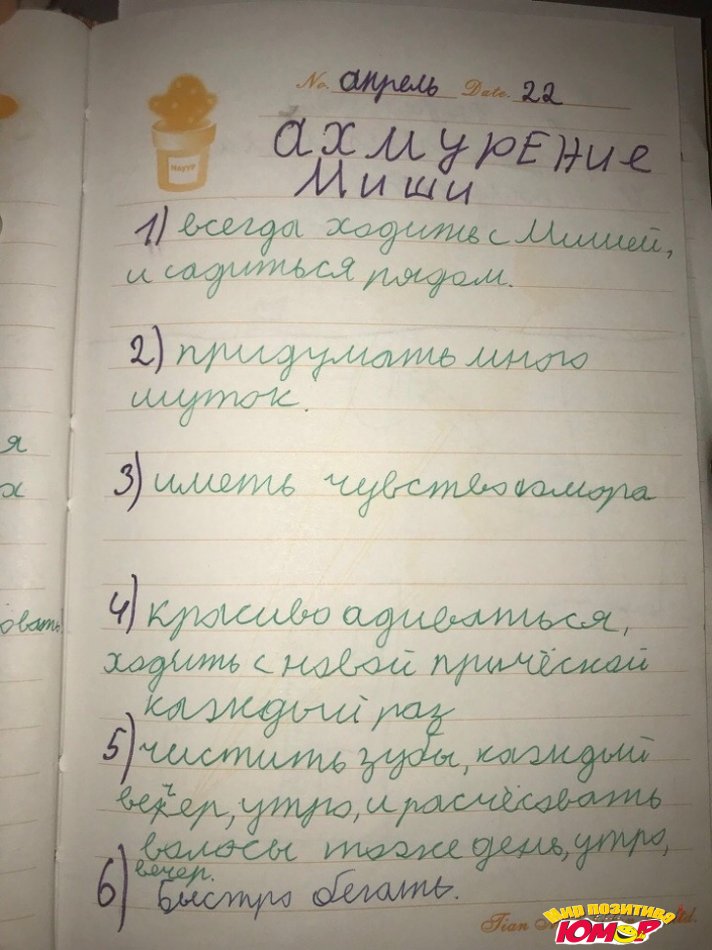 No. апрель Date. 22
ахмурЕНие
Миши
1) всегда ходить с Мишей,
и садиться рядом.
2) придумать много
шуток.
3) иметь чувство юмора
4) красиво адиваться,
ходить с новой причёской
каждый раз
5) чистить зубы, каждый
вечер, утро, и расчёсовать
волосы тоже день, утро,
вечер.
6) Быстро бегать.
я
х
овать
Tian
Мир позитива
ЮМОР
td.